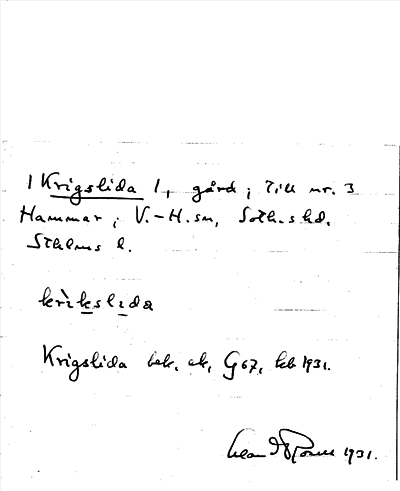 1 Krigslida 1, gård, Till nr. 3
Hammar, V.-H. sn, Soth. shd.
Sthlms l.
krìkslida
Krigslida bek. ek. G67, kb 1931.
1931.